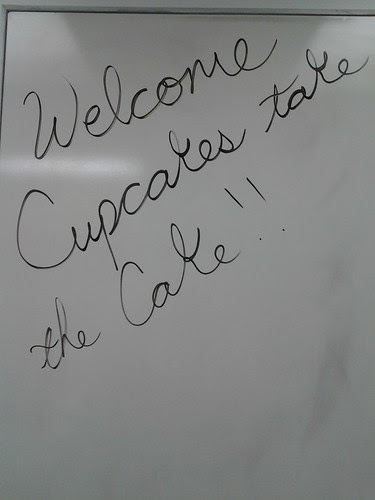 Welcome
Cupcakes take
the Cake!!